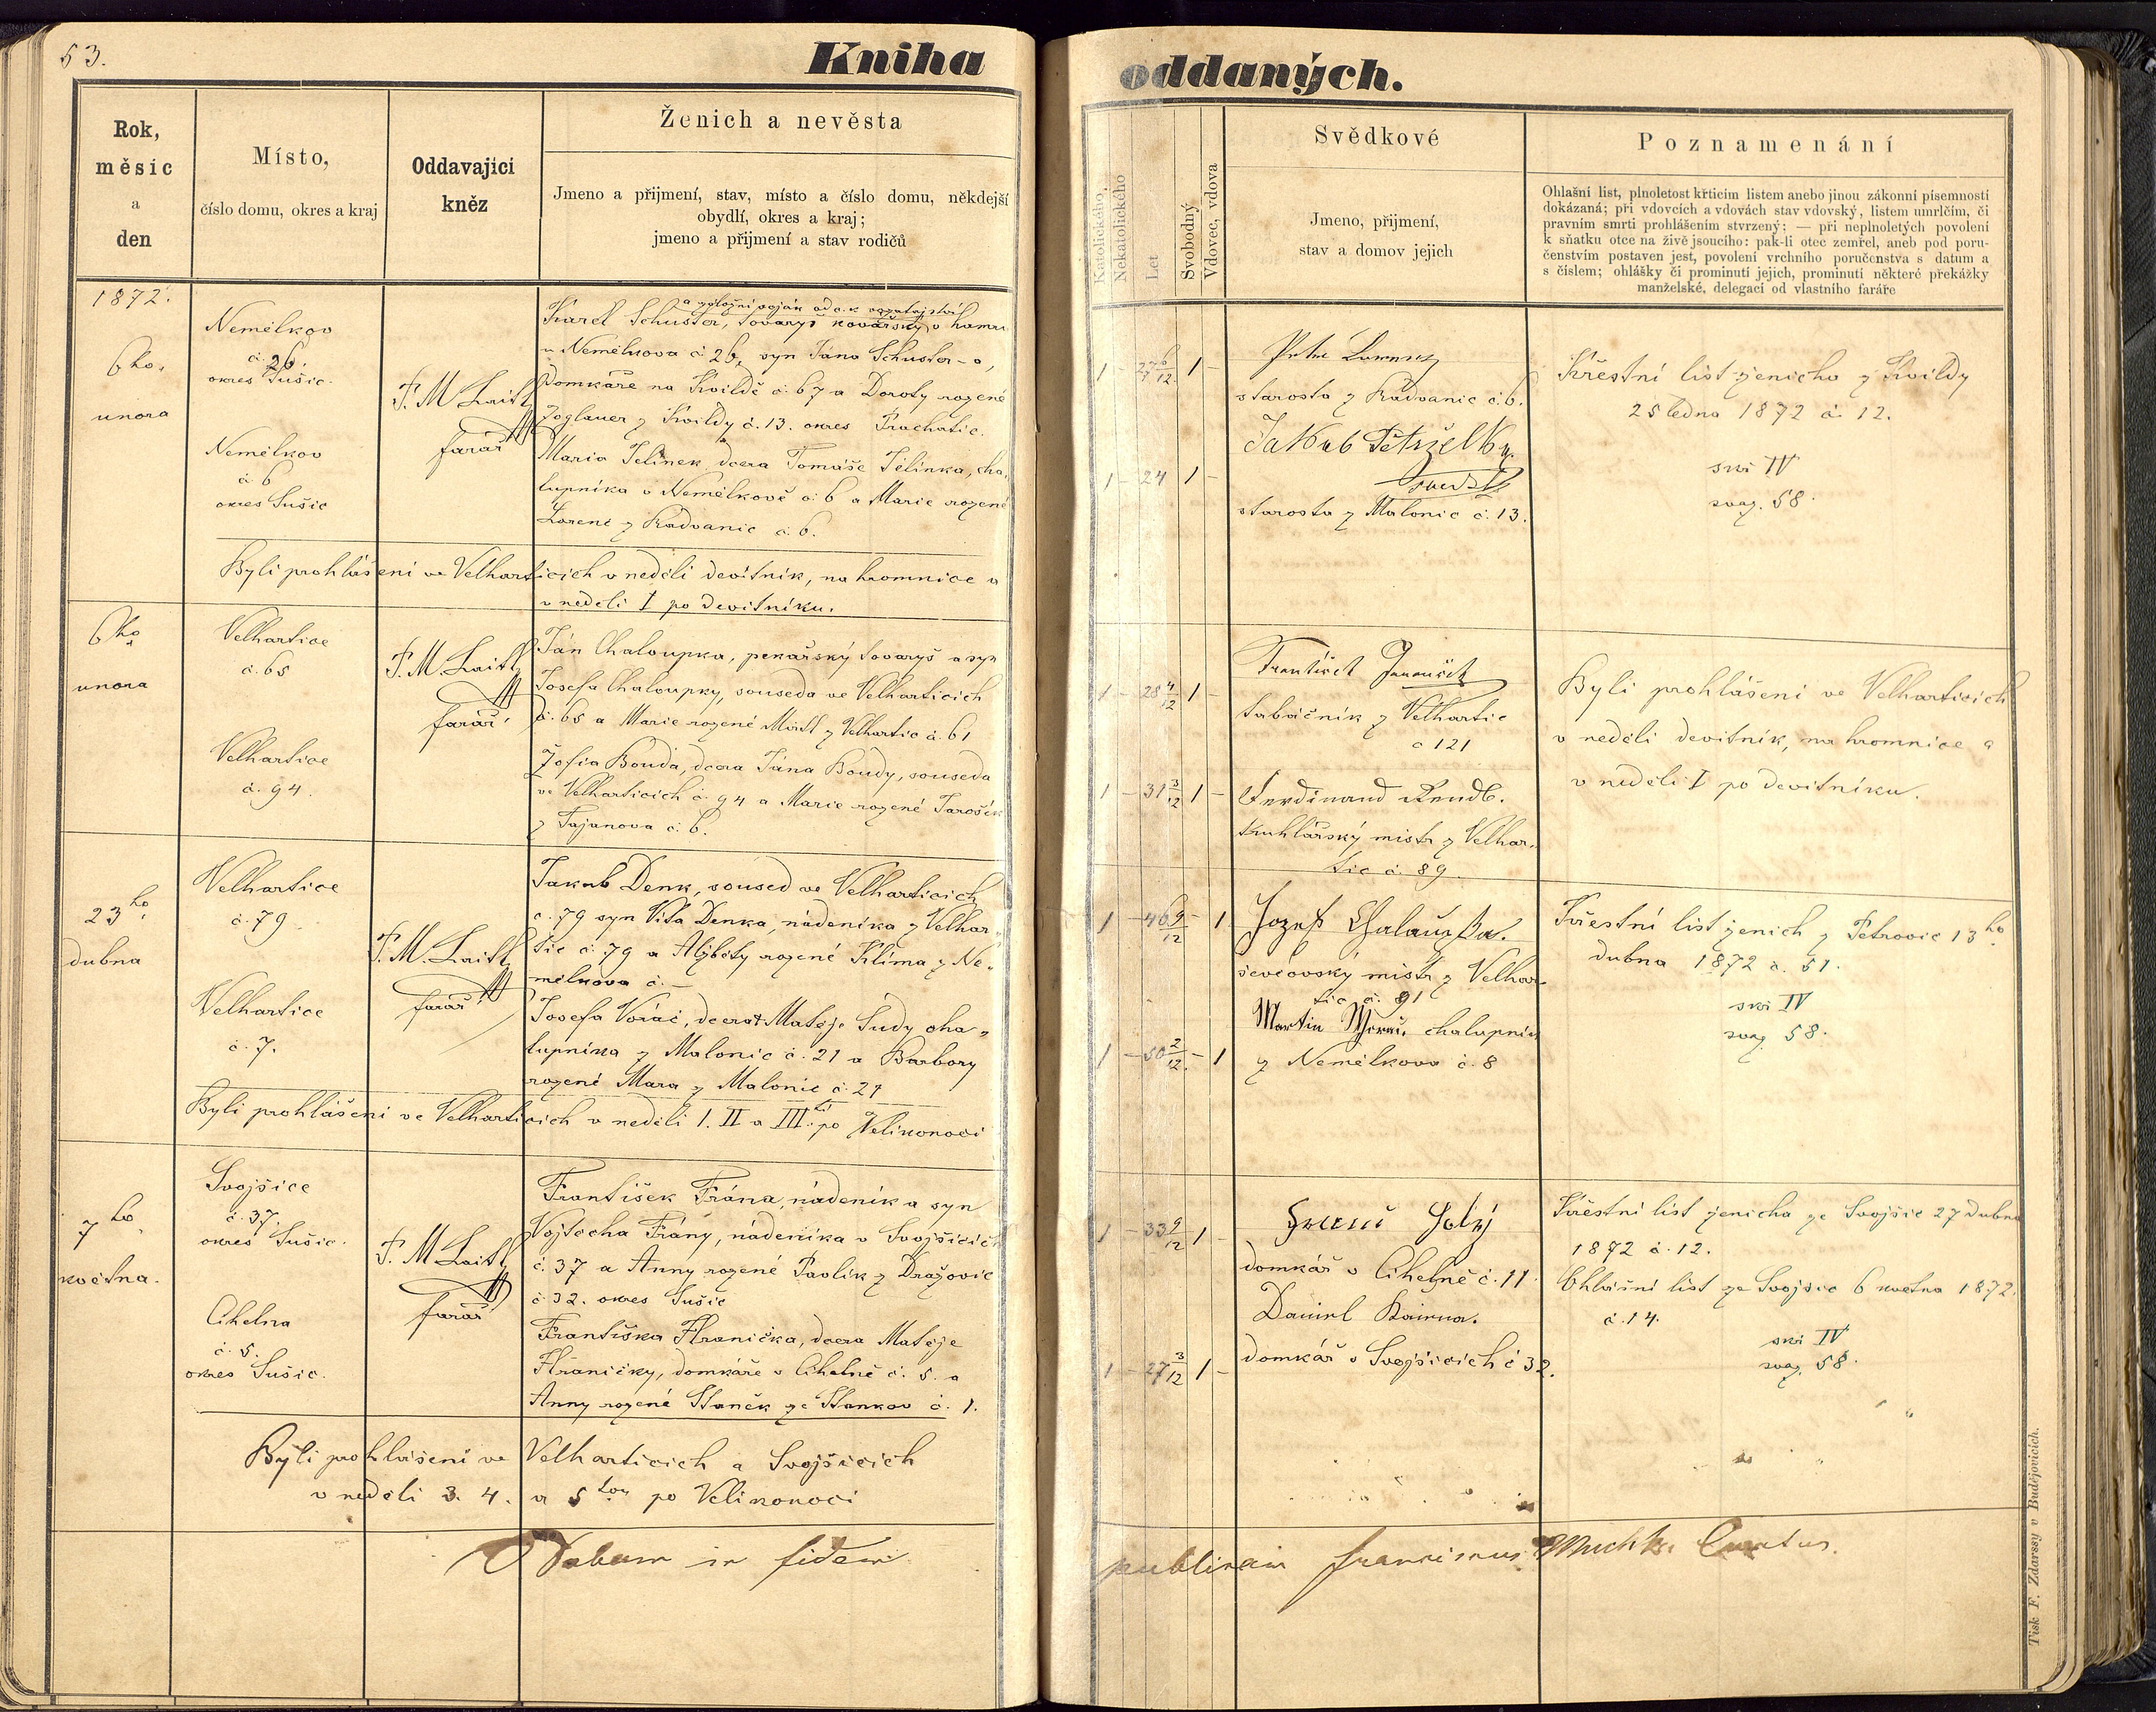 53.
Kniha oddaných.
Rok,
měsíc
a
den
Místo,
číslo domu, okres a kraj
Oddavající
kněz
Ženich a nevěsta
Jmeno a přijmení, stav, místo a číslo domu, někdejší
obydlí, okres a kraj;
jmeno a přijmení a stav rodičů
Katolického
Nekatolického
Let
Svobodný
Vdovec, vdova
Svědkové
Jmeno, přijmení,
stav a domov jejich
Poznamenání
Ohlašní list, plnoletost křticím listem anebo jinou zákonní písemností
dokázaná; při vdovcích a vdovách stav vdovský, listem umrlčím, či
pravním smrti prohlášením stvrzený; — při neplnoletých povolení
k sňatku otce na živě jsoucího: pak-li otec zemřel, aneb pod poru-
čenstvím postaven jest, povolení vrchního poručenstva s datum a
s číslem; ohlášky či prominutí jejich, prominutí některé překážky
manželské, delegací od vlastního faráře
1872.
6ho
unora
Nemělkov
č. 26.
okres Sušic.
Nemělkov
č. 6
okres Sušic
F. M. Laitl
farář
Karel Schuster, tovaryš kovářský v hamru
u Nemělkova č 26, syn Jána Schuster-a,
domkáře na Kvildě č. 67 a Doroty rozené
Zoglauer z Kvildy č. 13. okres Prachatic.
Maria Jelínek dcera Tomáše Jelínka, cha-
lupníka v Nemělkově č. 6 a Marie rozené
Lorenc z Radvanic č. 6.
Byli prohlášeni ve Velharticích v neděli devítník, na hromnice a
v neděli I po devítníku.
1 - 27 6/12 1 -
1 - 24 1 -
starosta z Radvanic č. 6.
Jakub Petrželka
svědek
starosta z Malonic č. 13.
Křestní list ženicha z Kvildy
25 ledna 1872 č. 12.
svaz. 58.
6ho
unora
Velhartice
č. 65
Velhartice
č. 94.
F. M. Laitl
farář
Ján Chaloupka, pekařský tovaryš a syn
Josefa Chaloupky, souseda ve Velharticích
č. 65 a Marie rozené z Velhartic č. 61
Žofia Bouda, dcera Jána Boudy, souseda
ve Velharticích č. 94 a Marie rozené Jarošík
z Tajanova č. 6.
1 - 28 4/12 1 -
1 - 31 3/12 1 -
František
tabáčník z Velhartic
č 121
Ferdinand Rendl.
truhlářský mistr z Velhar-
tic č. 89.
Byli prohlášeni ve Velharticích
v neděli devítník, na hromnice a
v neděli I po devítníku.
23ho
dubna
Velhartice
č. 79
Velhartice
č. 7.
F. M. Laitl
farář
Jakub Denk, soused ve Velharticích
č. 79 syn Víta Denka, nádeníka z Velhar-
tic č. 79 a Alžběty rozené Klíma z Ne-
mělkova č. -
Josefa Voráč, dcera † Matěje Sudy cha-
lupníka z Malonic č. 21 a Barbory
rozené Mara z Malonic č. 27
Byli prohlášeni ve Velharticích v neděli I. II a III.tí po Velikonoci
1 - 46 9/12 - 1
1 - 50 2/12 - 1
Jozef Chalaupka.
ševcovský mistr z Velhar-
tic č. 91
Martin chalupník
z Nemělkova č. 8
Křestní list ženich z Petrovic 13ho
dubna 1872 č. 51.
svaz. 58.
7ho
května.
Svojšice
č. 37.
okres Sušic.
Cihelna
č. 5.
okres Sušic.
F. M. Laitl
farář
František Frána, nádeník a syn
Vojtěcha Frány, nádeníka v Svojšicích
č. 37 a Anny rozené Pavlík z Dražovic
č 32. okres Sušic
Františka Hranička, dcera Matěje
Hraničky, domkáře v Cihelně č. 5. a
Anny rozené Staněk ze Stankov č. 1.
Byli prohlášeni ve Velharticích a Svojšicích
v neděli 3. 4. a 5tou po Velikonoci
1 - 33 9/12 - 1 -
1 - 27 3/12 1 -
domkář v Cihelně č. 11.
Daniel
domkář v Svojšicích č 32.
Křestní list ženicha ze Svojšic 27 dubna
1872 č. 12.
Ohlašní list ze Svojšic 6 května 1872.
č. 14.
svaz. 58.
Datum in fidem
publicam Franciscus Curatus.
Tisk F. Zdarssy v Budějovicích.